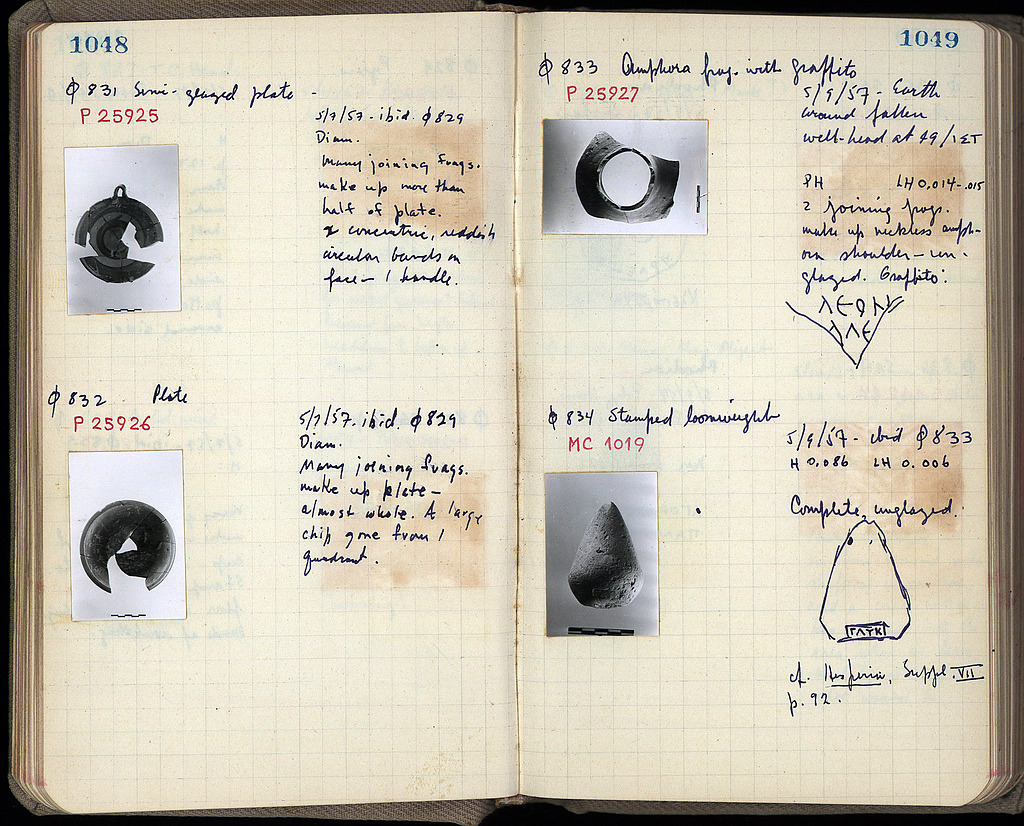 1048
Φ 831 Semi-glazed plate -
P 25925
5/7/57 - ibid. Φ829
Diam.
Many joining frags.
make up more than
half of plate.
concentric, reddish
circular bands on
face — 1 handle.
Φ 832 Plate
P 25926
5/7/57. ibid. Φ829
Diam.
Many joining frags.
make up plate —
almost whole. A large
chip gone from 1
quadrant.
1049
Φ 833 Amphora frag. with graffito
P 25927
5/9/57 - Earth
around fallen
well-head at 49/ΙΣΤ
PH LH 0.014-.015
2 joining frags.
make up neckless amph-
ora shoulder — un-
glazed. Graffito:
ΛΕΟΝ
ΛΛΕ
Φ 834 Stamped loomweight
MC 1019
5/9/57 - ibid Φ833
H 0.086 LH 0.006
Complete, unglazed.
ΓΛΥΚ
cf. Hesperia, Suppl. VII
p. 92.